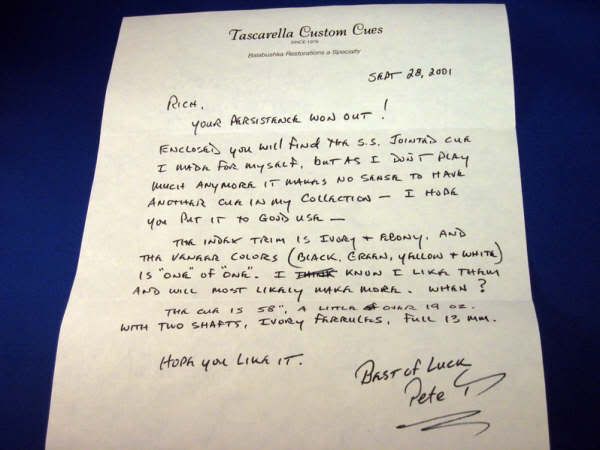 Tascarella Custom Cues
SINCE 1979
Balabushka Restorations a Specialty
SEPT 28, 2001
RICH,
YOUR PERSISTENCE WON OUT!
ENCLOSED YOU WILL FIND THE S.S. JOINTED CUE
I MADE FOR MYSELF, BUT AS I DON'T PLAY
MUCH ANYMORE IT MAKES NO SENSE TO HAVE
ANOTHER CUE IN MY COLLECTION — I HOPE
YOU PUT IT TO GOOD USE —
THE INDEX TRIM IS IVORY + EBONY, AND
THE VENEER COLORS (BLACK, GREEN, YELLOW + WHITE)
IS "ONE" OF "ONE". I KNOW I LIKE THEM
AND WILL MOST LIKELY MAKE MORE. WHEN?
THE CUE IS 58", A LITTLE OVER 19 OZ.
WITH TWO SHAFTS, IVORY FERRULES, FULL 13 MM.
HOPE YOU LIKE IT.
BEST OF LUCK
Pete T